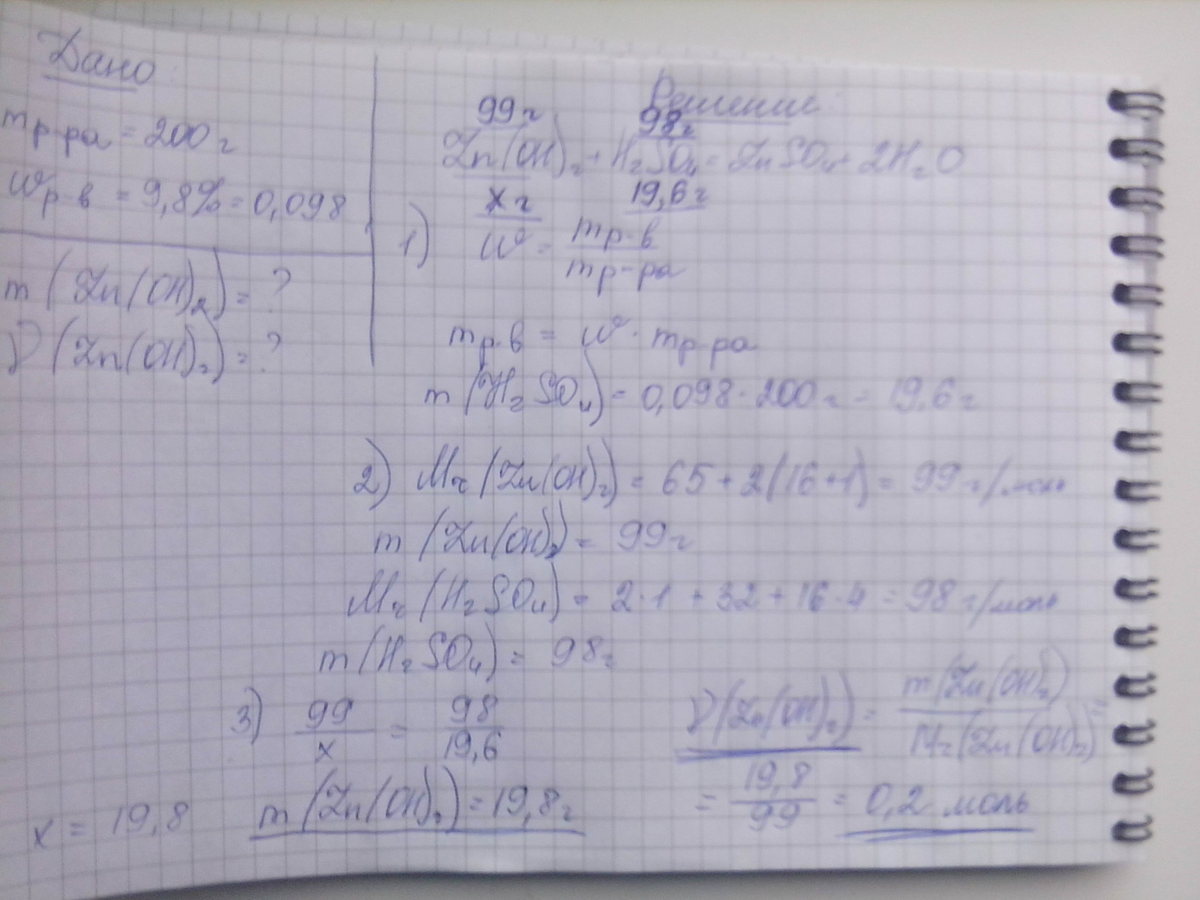 Дано:
mр-ра = 200 г
Wр.в = 9,8% = 0,098
m (Zn(OH)₂) = ?
ν (Zn(OH)₂) = ?
Решение:
99 г 98 г
Zn(OH)₂ + H₂SO₄ = ZnSO₄ + 2H₂O
x г 19,6 г
1) W = mр.в / mр-ра
mр.в = W · mр-ра
m (H₂SO₄) = 0,098 · 200 г = 19,6 г
2) Mr (Zn(OH)₂) = 65 + 2(16+1) = 99 г/моль
m (Zn(OH)₂) = 99 г
Mr (H₂SO₄) = 2·1 + 32 + 16·4 = 98 г/моль
m (H₂SO₄) = 98 г
3) 99 / x = 98 / 19,6
x = 19,8 m (Zn(OH)₂) = 19,8 г
ν (Zn(OH)₂) = m (Zn(OH)₂) / Mr (Zn(OH)₂) =
= 19,8 / 99 = 0,2 моль